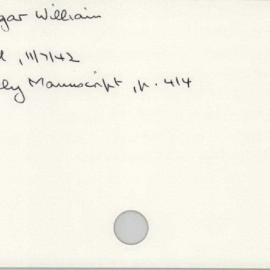 gar William
, 11/7/42
ly Manuscript, p. 414